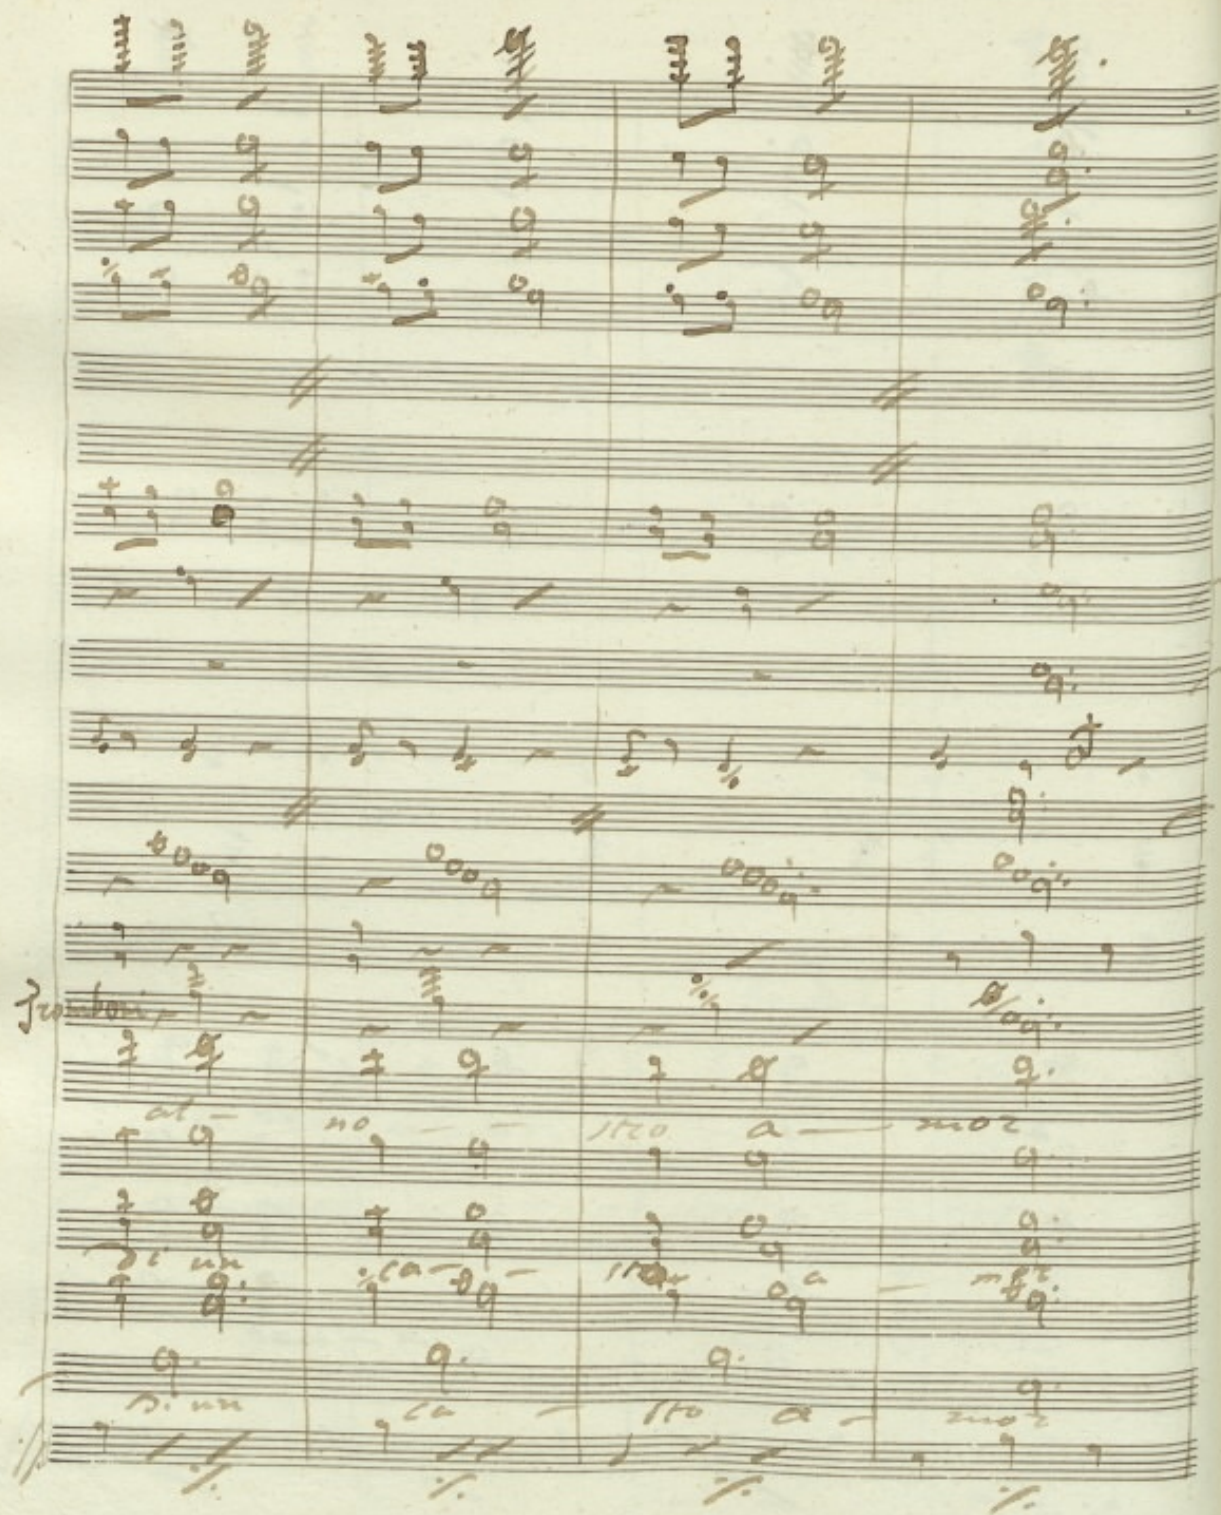 Tromboni
al - no - - stro a - mor
Di un ca - - sto a - mor
Di un ca - sto a - mor